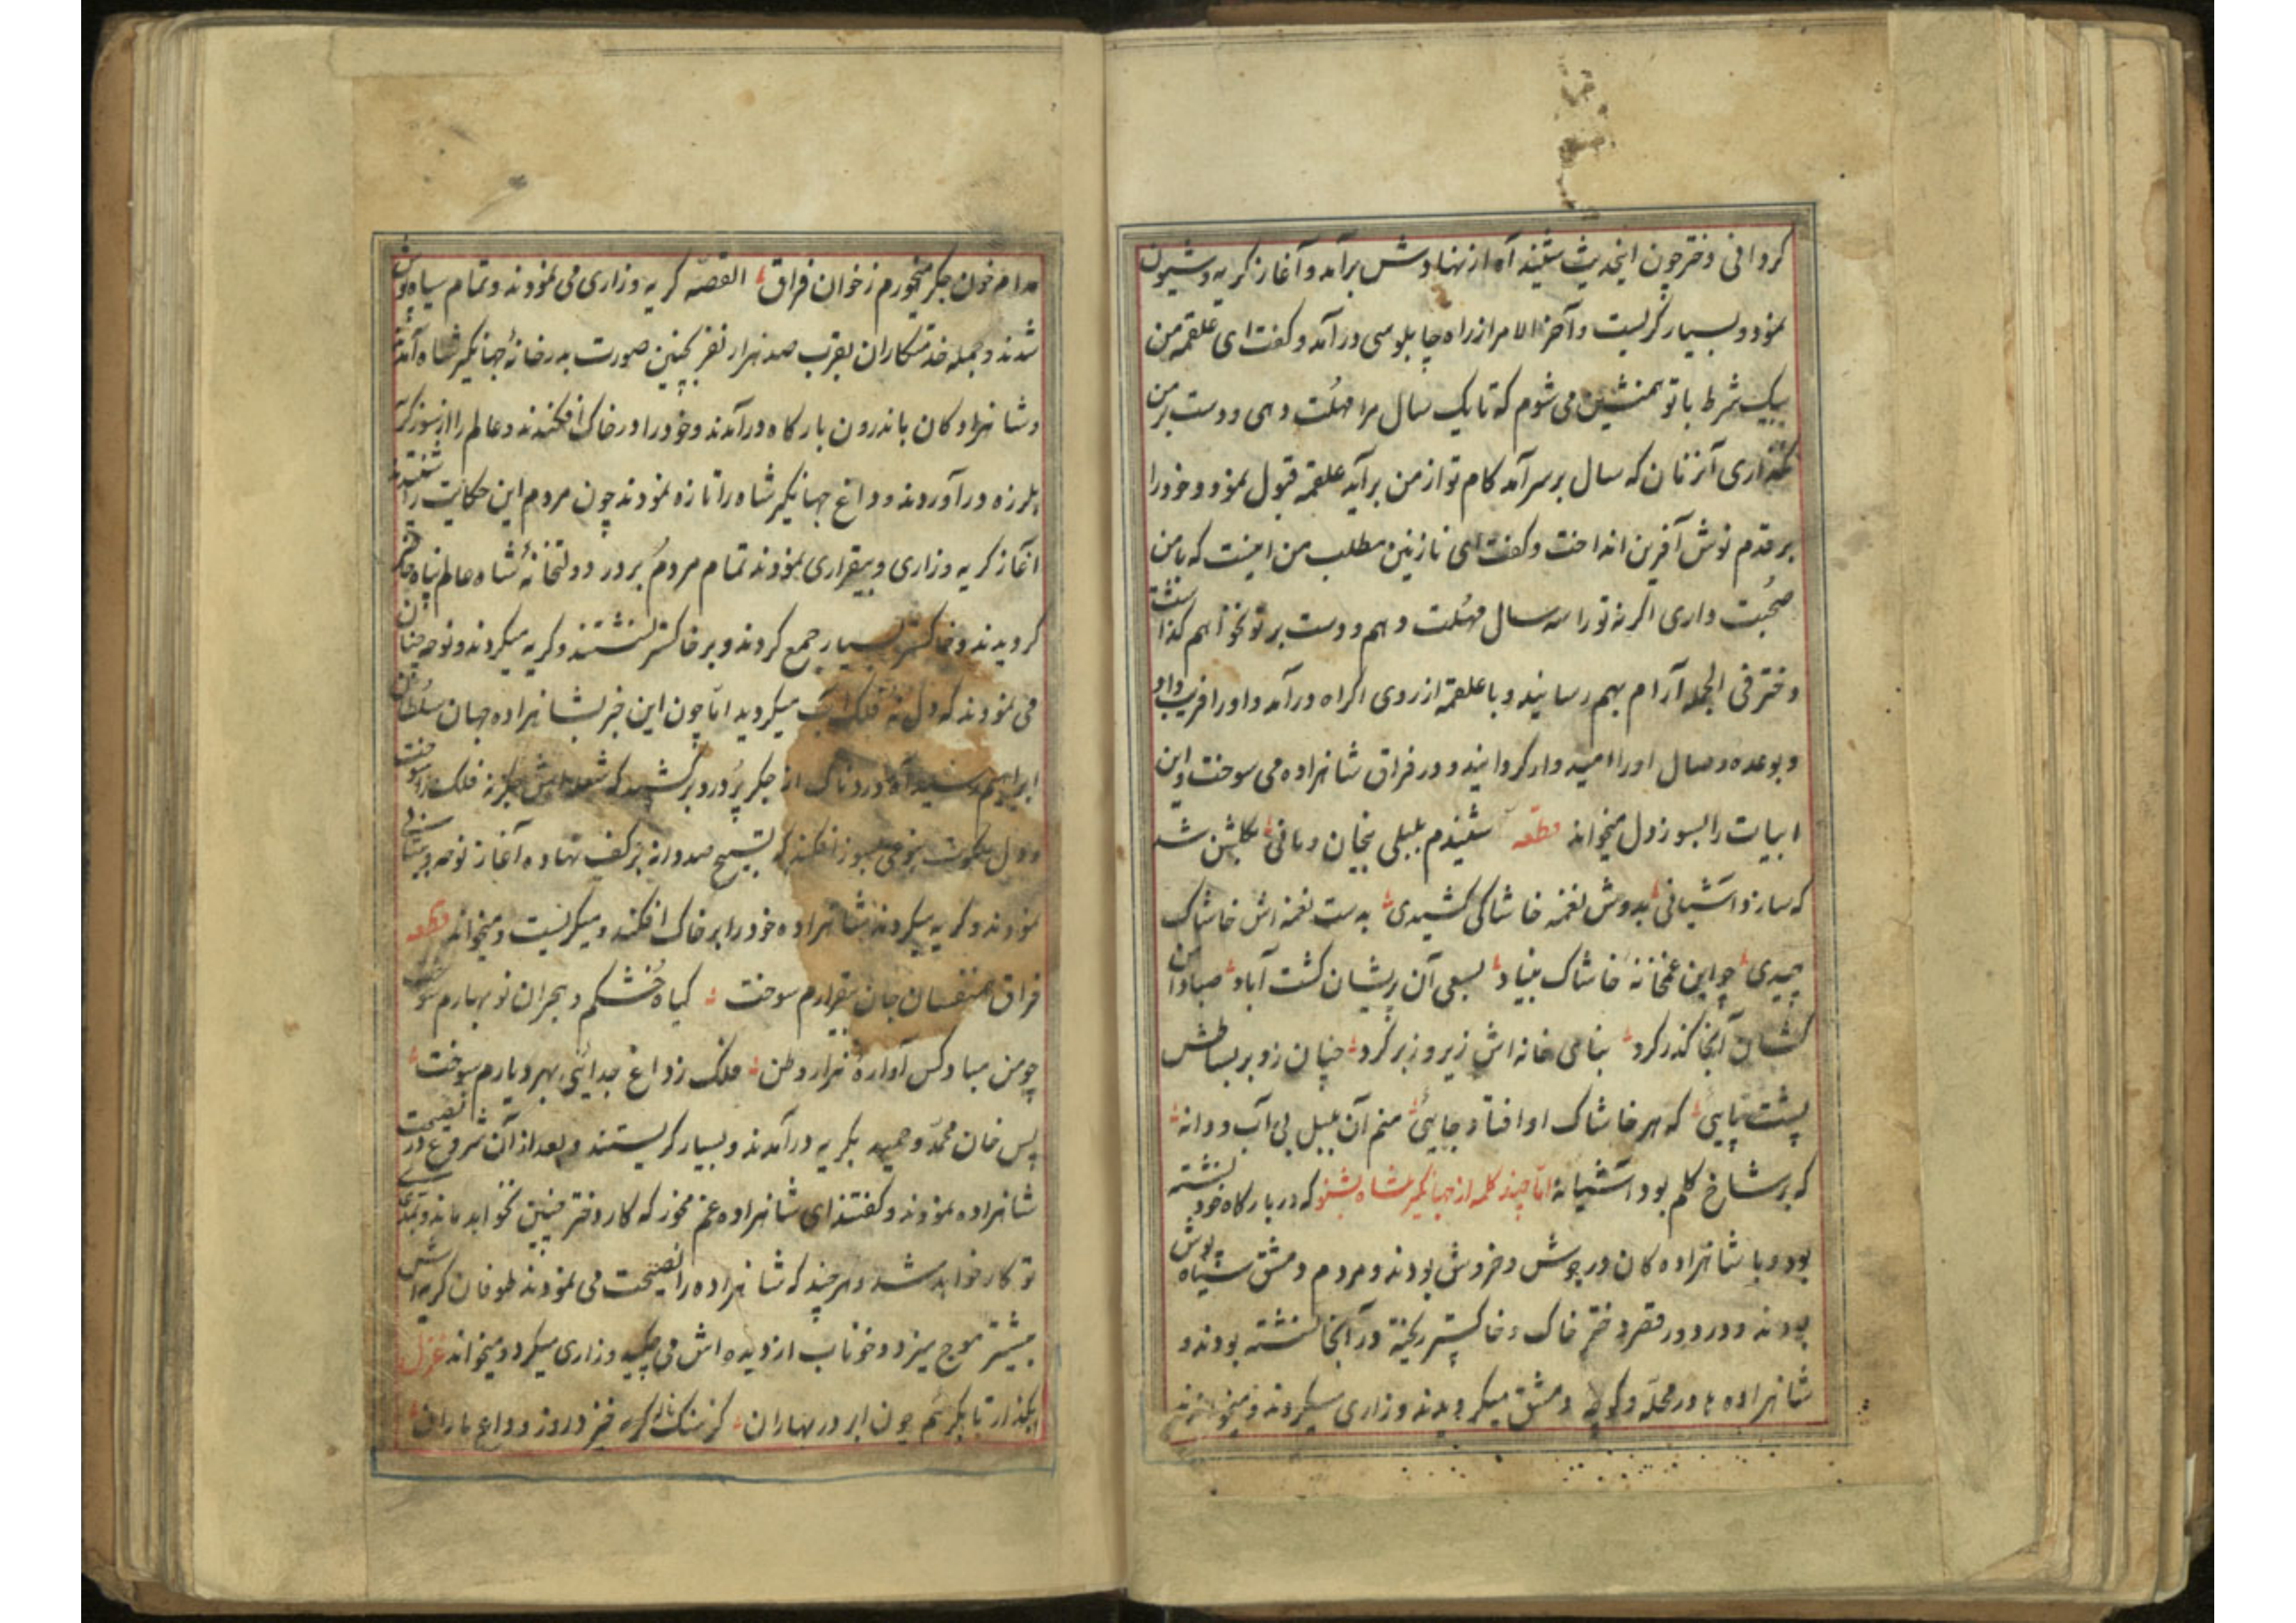 کردانی دختر چون اینحدیث شنید آه از نهادش برآمد و آغاز کریه و شیون
نمود و بسیار کریست و آخرالامر از راه چاپلوسی درآمد و کفت ای علقمه من
بیک شرط با تو همنشین می شوم که تا یک سال مرا مهلت دهی و دست بر من
نکذاری آنزنان که سال برسر آمد کام تو از من برآید علقمه قبول نمود و خود را
بر قدم نوش آفرین انداخت و کفت ای نازنین مطلب من اینست که با من
صحبت داری اکر نه تو را سه سال مهلت دهم و دست بر تو نخواهم کذاشت
دختر فی الجمله آرام بهم رسانید و با علقمه از روی اکراه درآمد و او را فریب داد
و بوعده وصال او را امیدوار کردانید و در فراق شاهزاده می سوخت و این
ابیات را بسوز دل میخواند قطعه شنیدم بلبلی بخان و مانی بکلشن شد
که سازد آشیانی بدوش نغمه خاشاکی کشیدی بدست نغمه اش خاشاک
چیدی چو این غمخانه خاشاک بنیاد بسعی آن پریشان کشت آباد صبا دامن
کشان آنجا کذر کرد بنای خانه اش زیر و زبر کرد چنان زد بر بساطش
پشت پایی که هر خاشاک او افتاد جایی منم آن بلبل بی آب و دانه
که بر شاخ کلم بود آشیانه اما چند کلمه از جهانکیر شاه بشنو که در بارکاه خود نشسته
بود و با شاهزاده کان در جوش و خروش بودند و مردم دمشق سیاه پوش
بودند و در دور قصر دختر خاک و خاکستر ریخته در آنجا نشسته بودند و
شاهزاده ها در محله و کوچه دمشق میکردیدند و زاری میکردند و میخواندند
مدام خون جکر میخورم ز خوان فراق القصه کریه و زاری می نمودند و تمام سیاه پوش
شدند و جمله خدمتکاران بقرب صد هزار نفر بچنین صورت بدرخانه جهانکیر شاه آمدند
و شاهزادکان باندرون بارکاه درآمدند و خود را در خاک افکندند و عالم را از سوز کریه
بلرزه درآوردند و داغ جهانکیر شاه را تازه نمودند چون مردم این حکایت را شنیدند
آغاز کریه و زاری و بیقراری نمودند تمام مردم بر در دولتخانه شاه عالم پناه حاضر
کردیدند و خاکستر بسیار جمع کردند و بر خاکستر نشستند و کریه میکردند و نوحه چنان
می نمودند که دل نه فلک آب میکردید اما چون این خبر بشاهزاده جهان سلطان
ابراهیم رسید آه دردناک از جکر پر درد برکشید که شعله اش جکر نه فلک را سوخت
و دل بنوعی بسوز افکند که تسبیح صد دانه بر کف نهاده آغاز نوحه و
نمودند و کریه میکردند شاهزاده خود را بر خاک افکند و میکریست و میخواند قطعه
فراق همنفسان جان بیقرارم سوخت کیاه خشکم و هجران نوبهارم سوخت
چو من مباد کس آواره هزار وطن فلک ز داغ جدائی بهر دیارم سوخت
پس خان محمد و حمید بکریه درآمدند و بسیار کریستند و بعد از آن شروع در نصیحت
شاهزاده نمودند و کفتند ای شاهزاده غم مخور که کار دختر چنین نخواهد ماند و
تو کار خواهد شد و هر چند که شاهزاده را نصیحت می نمودند طوفان کریه اش
بیشتر موج میزد و خوناب از دیده اش می چکید و زاری میکرد و میخواند غزل
بکذار تا بکریم چون ابر در بهاران کز سنک ناله خیزد روز وداع یاران